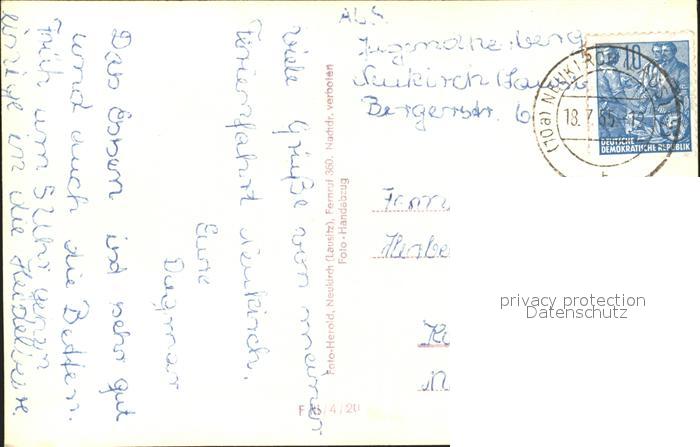 Viele Grüße von meiner
Ferienfahrt Neukirch.
Eure
Dagmar
Das Essen ist sehr gut
und auch die Betten.
Früh um 5 Uhr gehen
einige in die Heidelbeere.
Foto-Herold, Neukirch (Lausitz), Fernruf 360. Nachdr. verboten
Foto-Handabzug
F 5/4/20
Abs.
Jugendherberg
Neukirch (Lausitz
Bergerstr. 6
(10a) NEUKIRCH
18.7.55
10
DEUTSCHE
DEMOKRATISCHE REPUBLIK
Herbe
privacy protection
Datenschutz